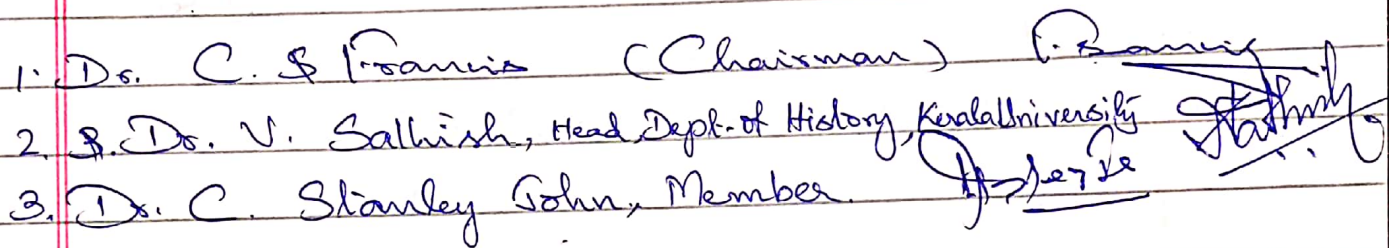 1. Dr. C. S Francis (Chairman)
2. Dr. V. Sathish, Head Dept. of History, Kerala University
3. Dr. C. Stanley John, Member.